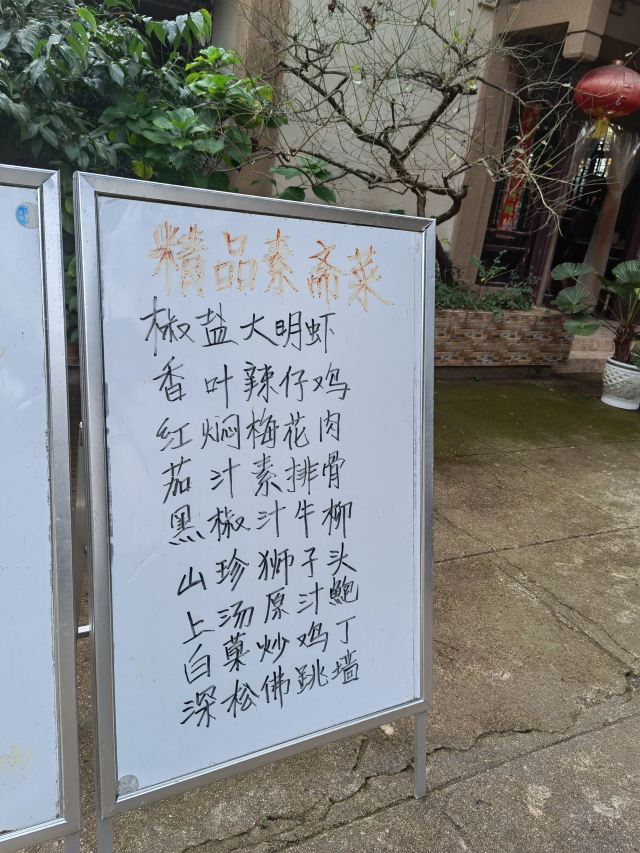 精品素斋菜
椒盐大明虾
香叶辣仔鸡
红焖梅花肉
茄汁素排骨
黑椒汁牛柳
山珍狮子头
上汤原汁鲍
白菓炒鸡丁
深松佛跳墙